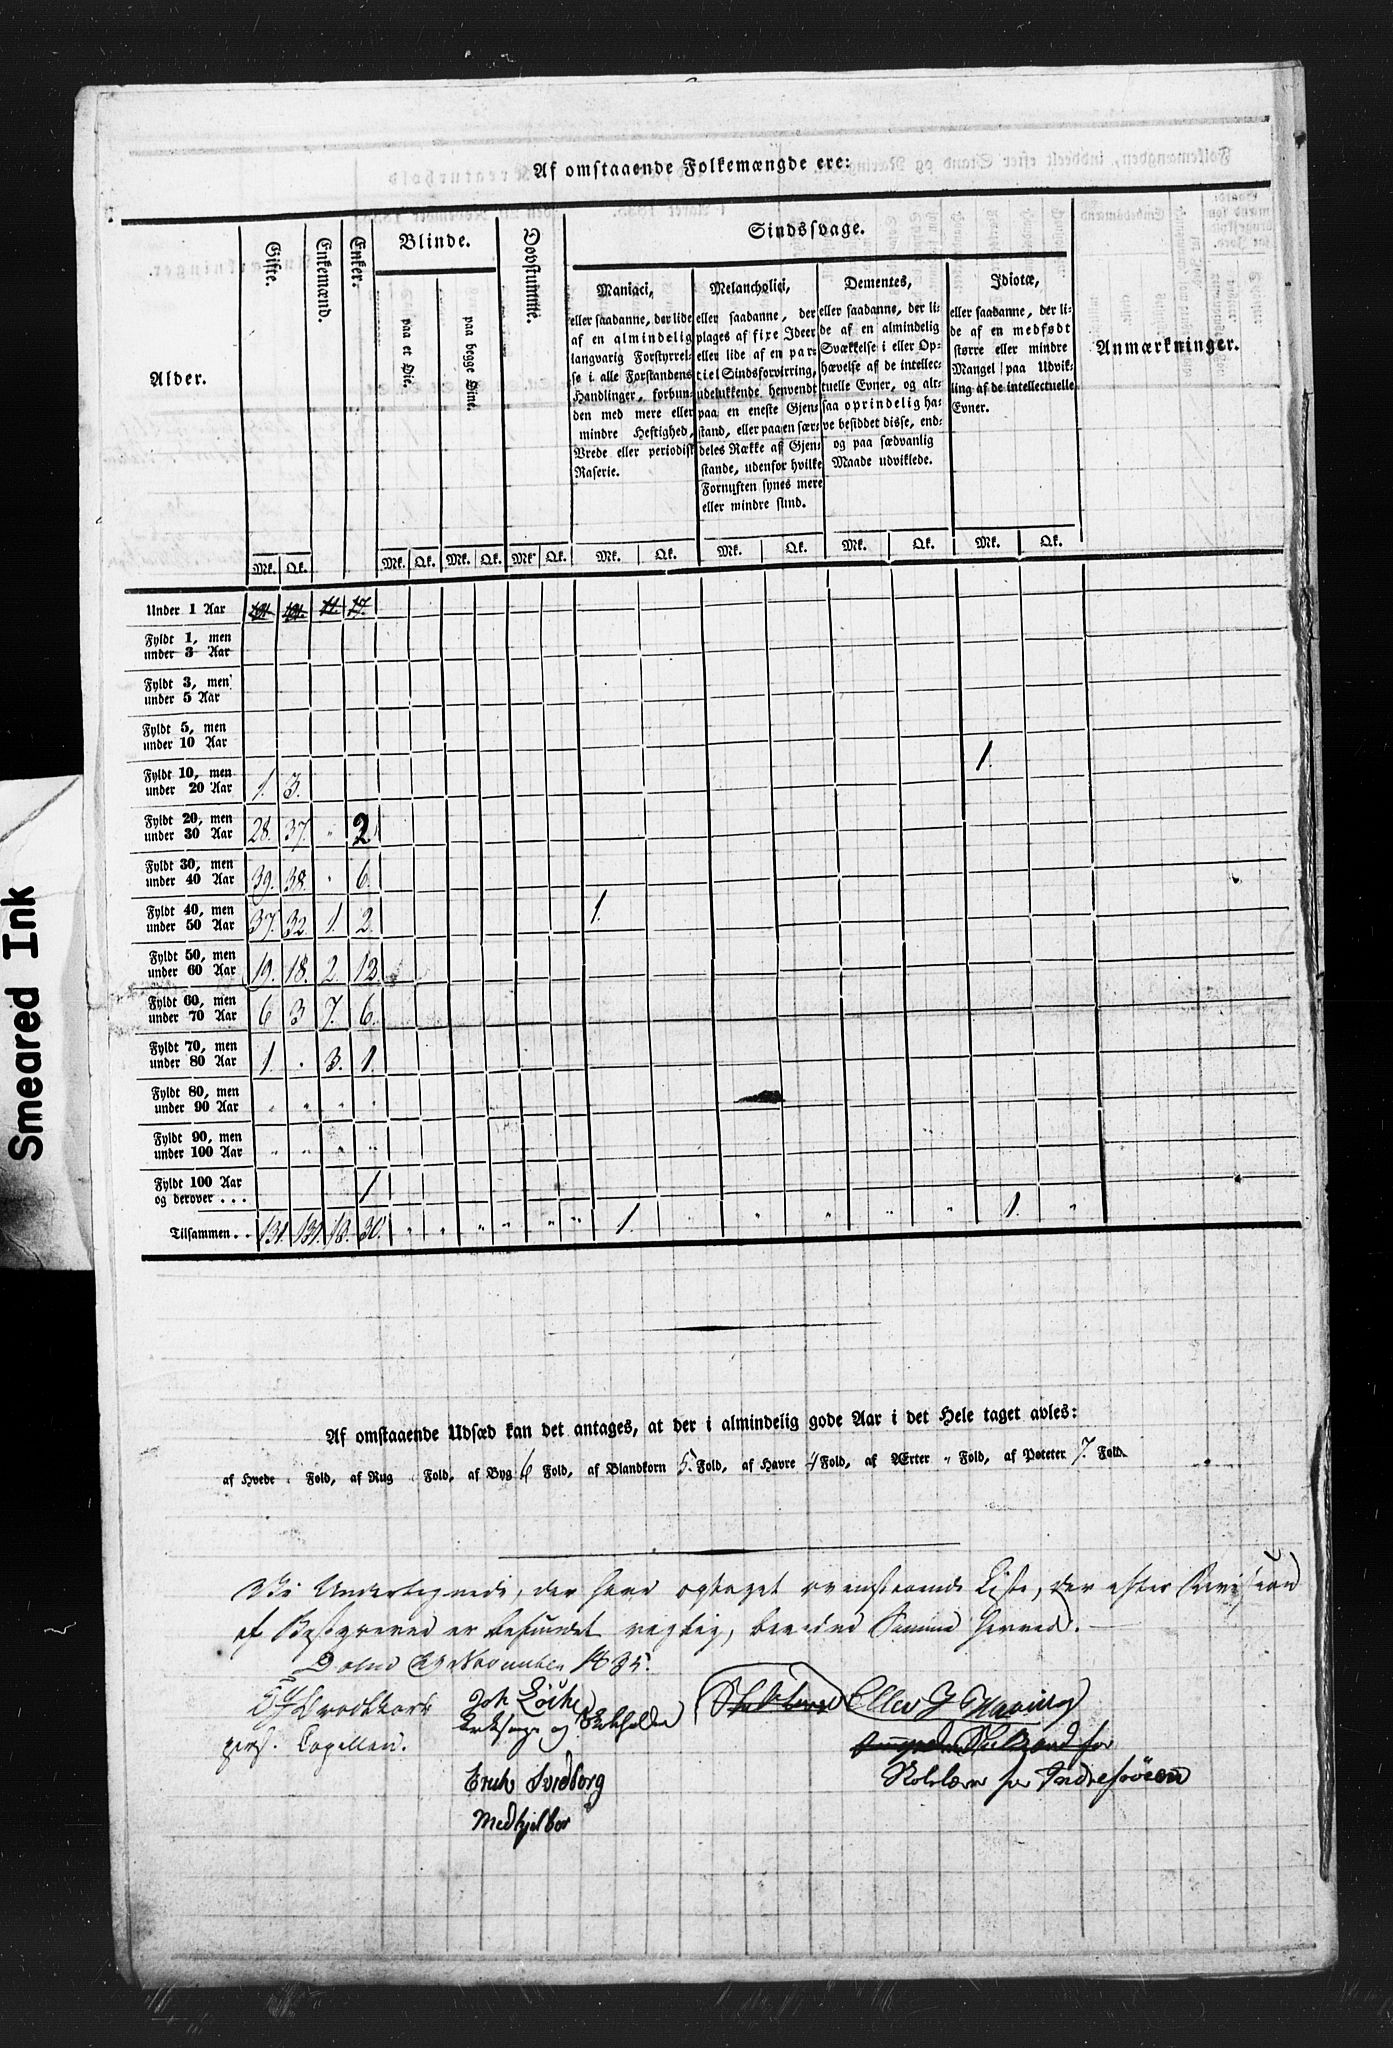 Af omstaaende Folkemængde ere:
Alder.
Gifte.
Enkemænd.
Enker.
Blinde.
paa et Øie.
paa begge Øine.
Døvstumme.
Sindssvage.
Maniaci,
eller saadanne, der lide
af en almindelig
langvarig Forstyrrel-
se i alle Forstandens
Handlinger, forbun-
den med mere eller
mindre Heftighed,
Vrede eller periodisk
Raserie.
Melancholici,
eller saadanne, der
plages af fixe Ideer
eller lide af en par-
tiel Sindsforvirring,
udelukkende henvendt
paa en eneste Gjen-
stand, eller paa en sær-
deles Række af Gjen-
stande, udenfor hvilke
Fornuften synes mere
eller mindre sund.
Dementes,
eller saadanne, der li-
de af en almindelig
Svækkelse i eller Op-
hævelse af de intellec-
tuelle Evner, og alt-
saa oprindelig ha-
ve besiddet disse, end-
og paa sædvanlig
Maade udviklede.
Idiotæ,
eller saadanne, der li-
de af en medfødt
større eller mindre
Mangel paa Udvik-
ling af de intellectuelle
Evner.
Anmærkninger.
Mk. Qk. Mk. Qk. Mk. Qk. Mk. Qk. Mk. Qk. Mk. Qk. Mk. Qk. Mk. Qk.
Under 1 Aar 131. 131. 11. 17.
Fyldt 1, men
under 3 Aar
Fyldt 3, men
under 5 Aar
Fyldt 5, men
under 10 Aar
Fyldt 10, men
under 20 Aar 1. 3. 1.
Fyldt 20, men
under 30 Aar 28. 37. " 2
Fyldt 30, men
under 40 Aar 39. 38. " 6.
Fyldt 40, men
under 50 Aar 37. 32. 1. 2. 1.
Fyldt 50, men
under 60 Aar 19. 18. 2. 12.
Fyldt 60, men
under 70 Aar 6 3 7. 6.
Fyldt 70, men
under 80 Aar 1 " 3. 1.
Fyldt 80, men
under 90 Aar " " " "
Fyldt 90, men
under 100 Aar " " " "
Fyldt 100 Aar
og derover . . . 1
Tilsammen . . 131. 131. 13. 30. " " " " " " 1. " " " " " 1. "
Af omstaaende Udsæd kan det antages, at der i almindelig gode Aar i det Hele taget avles:
af Hvede " Fold, af Rug " Fold, af Byg 6 Fold, af Blandkorn 5. Fold, af Havre 4 Fold, af Ærter " Fold, af Poteter 7. Fold.
Vi Undertegnede, der have optaget ovenstaaende Liste, der efter Revision
af Bestyreren er befundet rigtig, bevidne Samme herved.
29 November 1835.
pers. Capellan.
Erich Svedborg
Medhjelber
for Inderøen
Smeared Ink